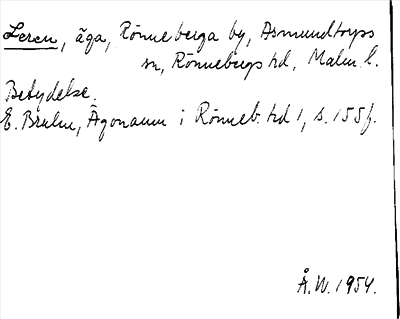 Leren, äga, Rönneberga by, Asmundtorps
sn, Rönnebergs hd, Malm. l.
Betydelse.
E. Bruhn, Ägonamn i Rönneb. hd 1, s. 155 f.
Å. W. 1954.